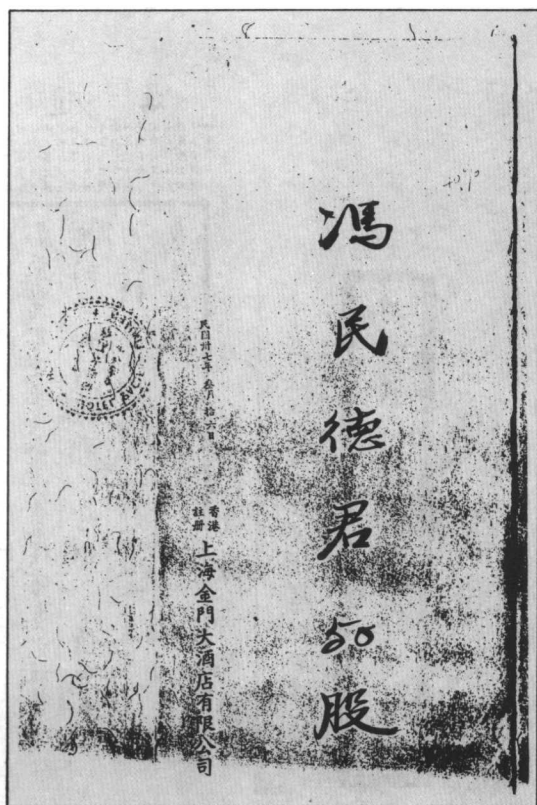 馮民德君50股
民國卅七年叁月拾六日
香港
註册
上海金門大酒店有限公司